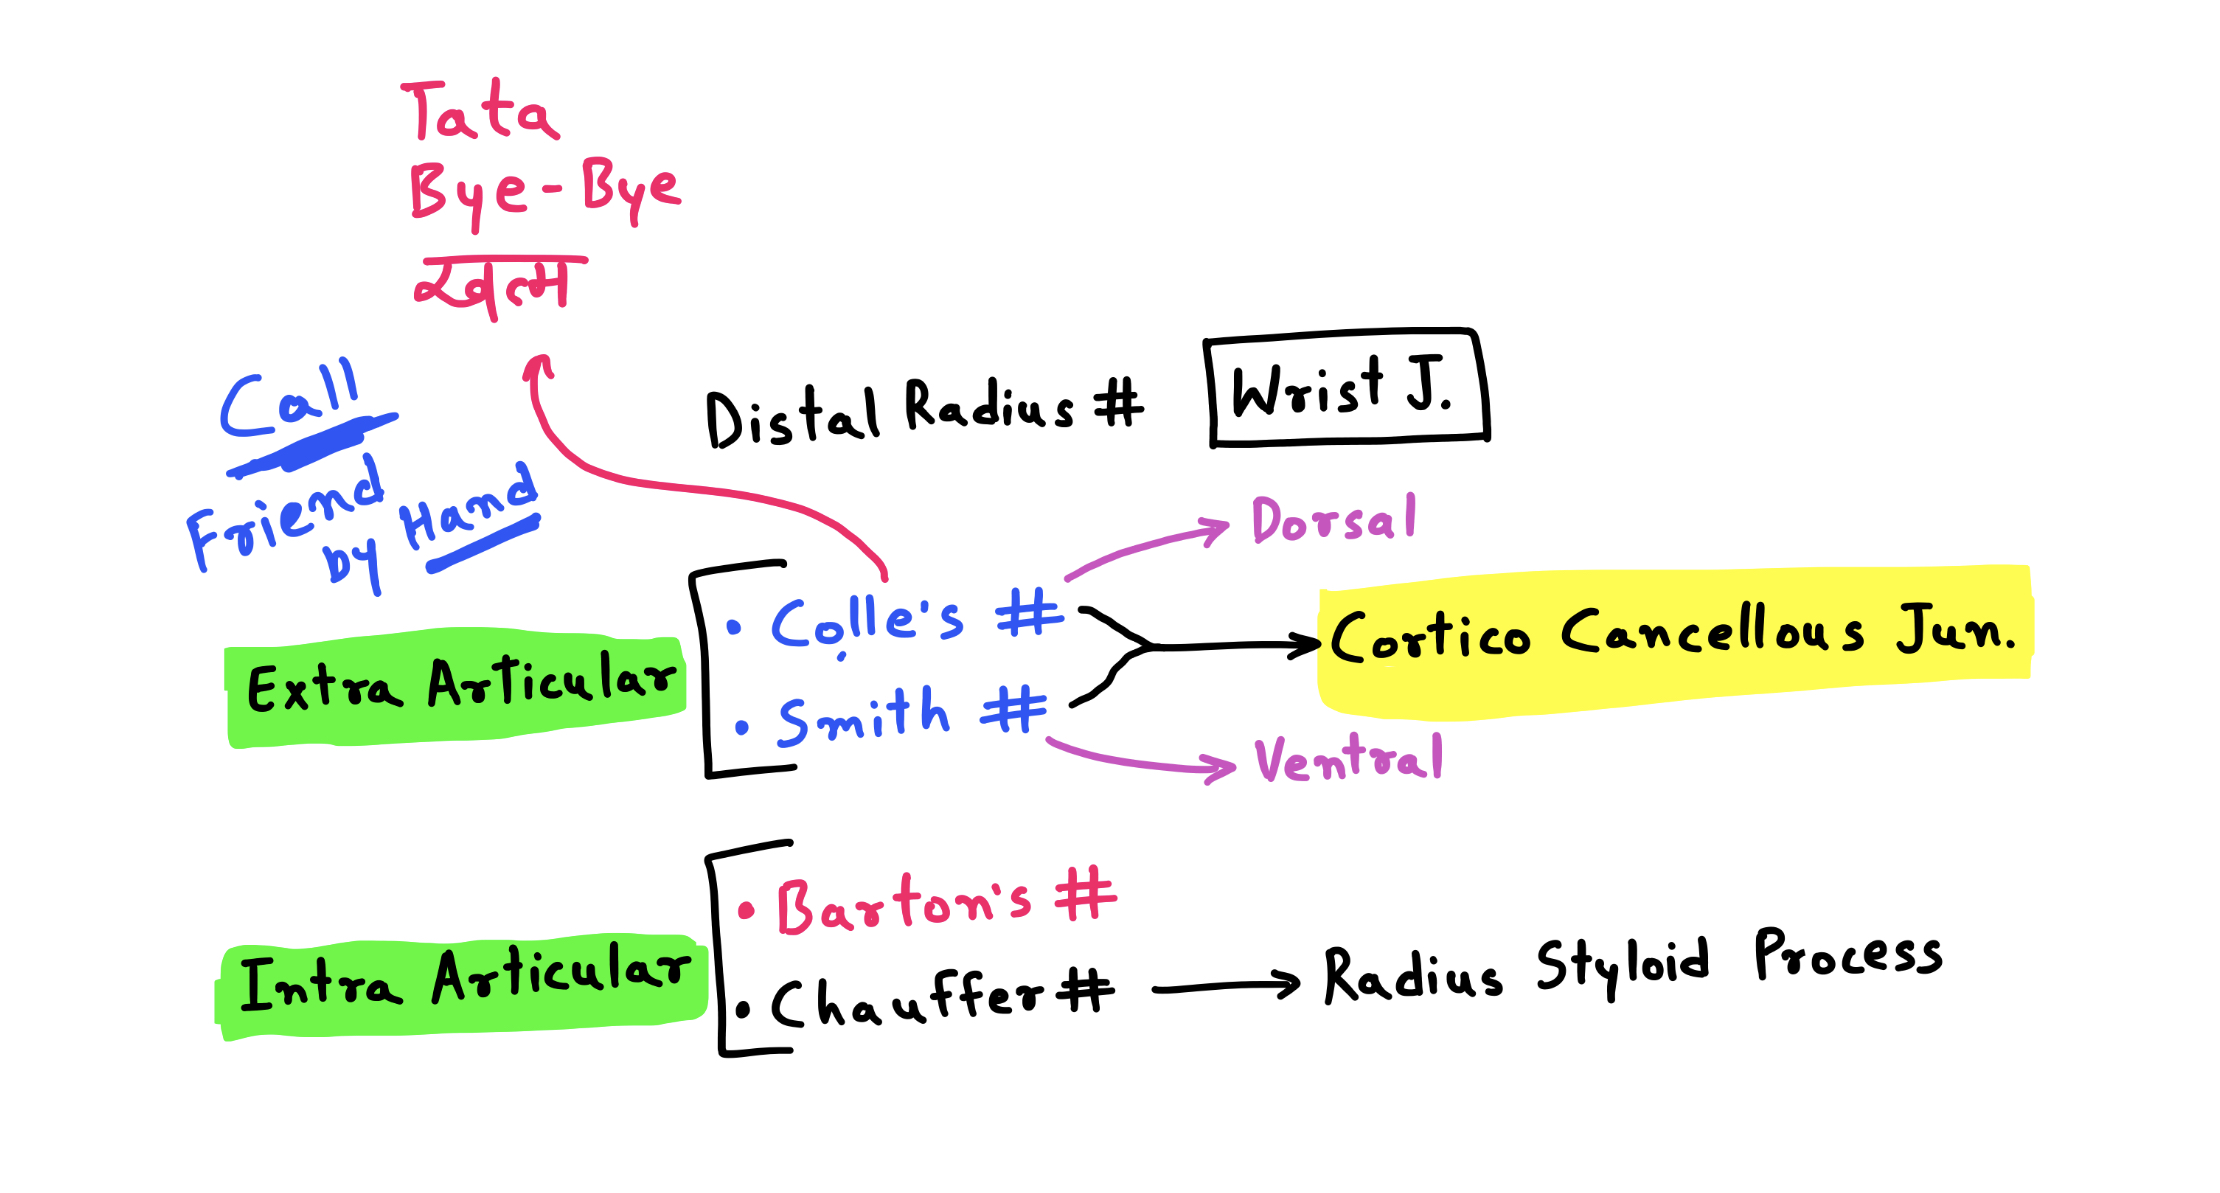 Tata
Bye-Bye
खत्म
Call
Friend
by Hand
Distal Radius # Wrist J.
Dorsal
Extra Articular
• Colle's #
• Smith #
Cortico Cancellous Jun.
Ventral
Intra Articular
• Barton's #
• Chauffer # → Radius Styloid Process